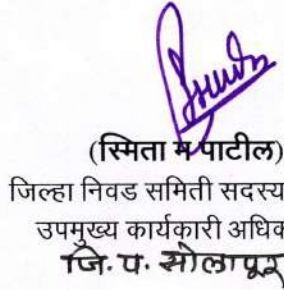 (स्मिता म पाटील)
जिल्हा निवड समिती सदस्य
उपमुख्य कार्यकारी
जि. प. सोलापूर